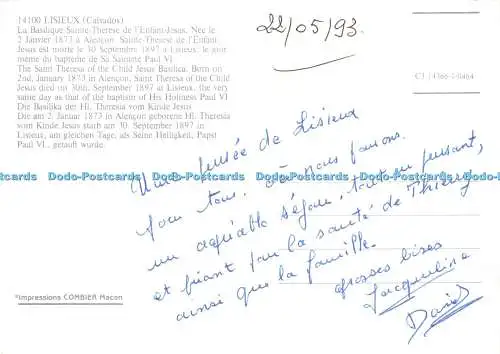 14100 LISIEUX (Calvados)
La Basilique Sainte-Thérèse de l'Enfant-Jésus. Née le
2 Janvier 1873 à Alençon. Sainte-Thérèse de l'Enfant-
Jésus est morte le 30 Septembre 1897 à Lisieux, le jour
même du baptême de Sa Sainteté Paul VI
The Saint Theresa of the Child Jesus Basilica. Born on
2nd. January 1873 in Alençon, Saint Theresa of the Child
Jesus died on 30th. September 1897 at Lisieux, the very
same day as that of the baptism of His Holiness Paul VI
Die Basilika der Hl. Theresia vom Kinde Jesus
Die am 2. Januar 1873 in Alençon geborene Hl. Theresia
vom Kinde Jesus starb am 30. September 1897 in
Lisieux, am gleichen Tage, als Seine Heiligkeit, Papst
Paul VI., getauft wurde.
22/05/93.
CI 14366-1-0464
Une pensée de Lisieux
pour tous. Où nous passons
un agréable séjour, tout en pensant,
et priant pour la santé de Thierry
ainsi que la famille.
grosses bises
Jacqueline
David
Impressions COMBIER Macon
Dodo-Postcards Dodo-Postcards Dodo-Postcards Dodo-Postcards